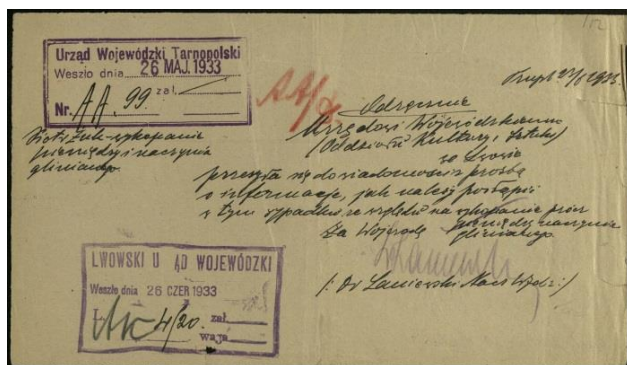 Urząd Wojewódzki Tarnopolski
Weszło dnia 26 MAJ. 1933
zał.
Nr. AA. 99
Piotr Żuk - wykopanie
pieniędzy i naczynia
glinianego.
Odręcznie
Urzędowi Wojewódzkiemu
(Oddziałowi Kultury i Sztuki)
we Lwowie
przesyła się do wiadomości z prośbą
o informację, jak należy postąpić
w tym wypadku ze względu na wykopanie przez
pieniędzy naczynia
glinianego.
Za Wojewodę
LWOWSKI U ĄD WOJEWÓDZKI
Weszło dnia 26 CZER 1933
4/20. zał.